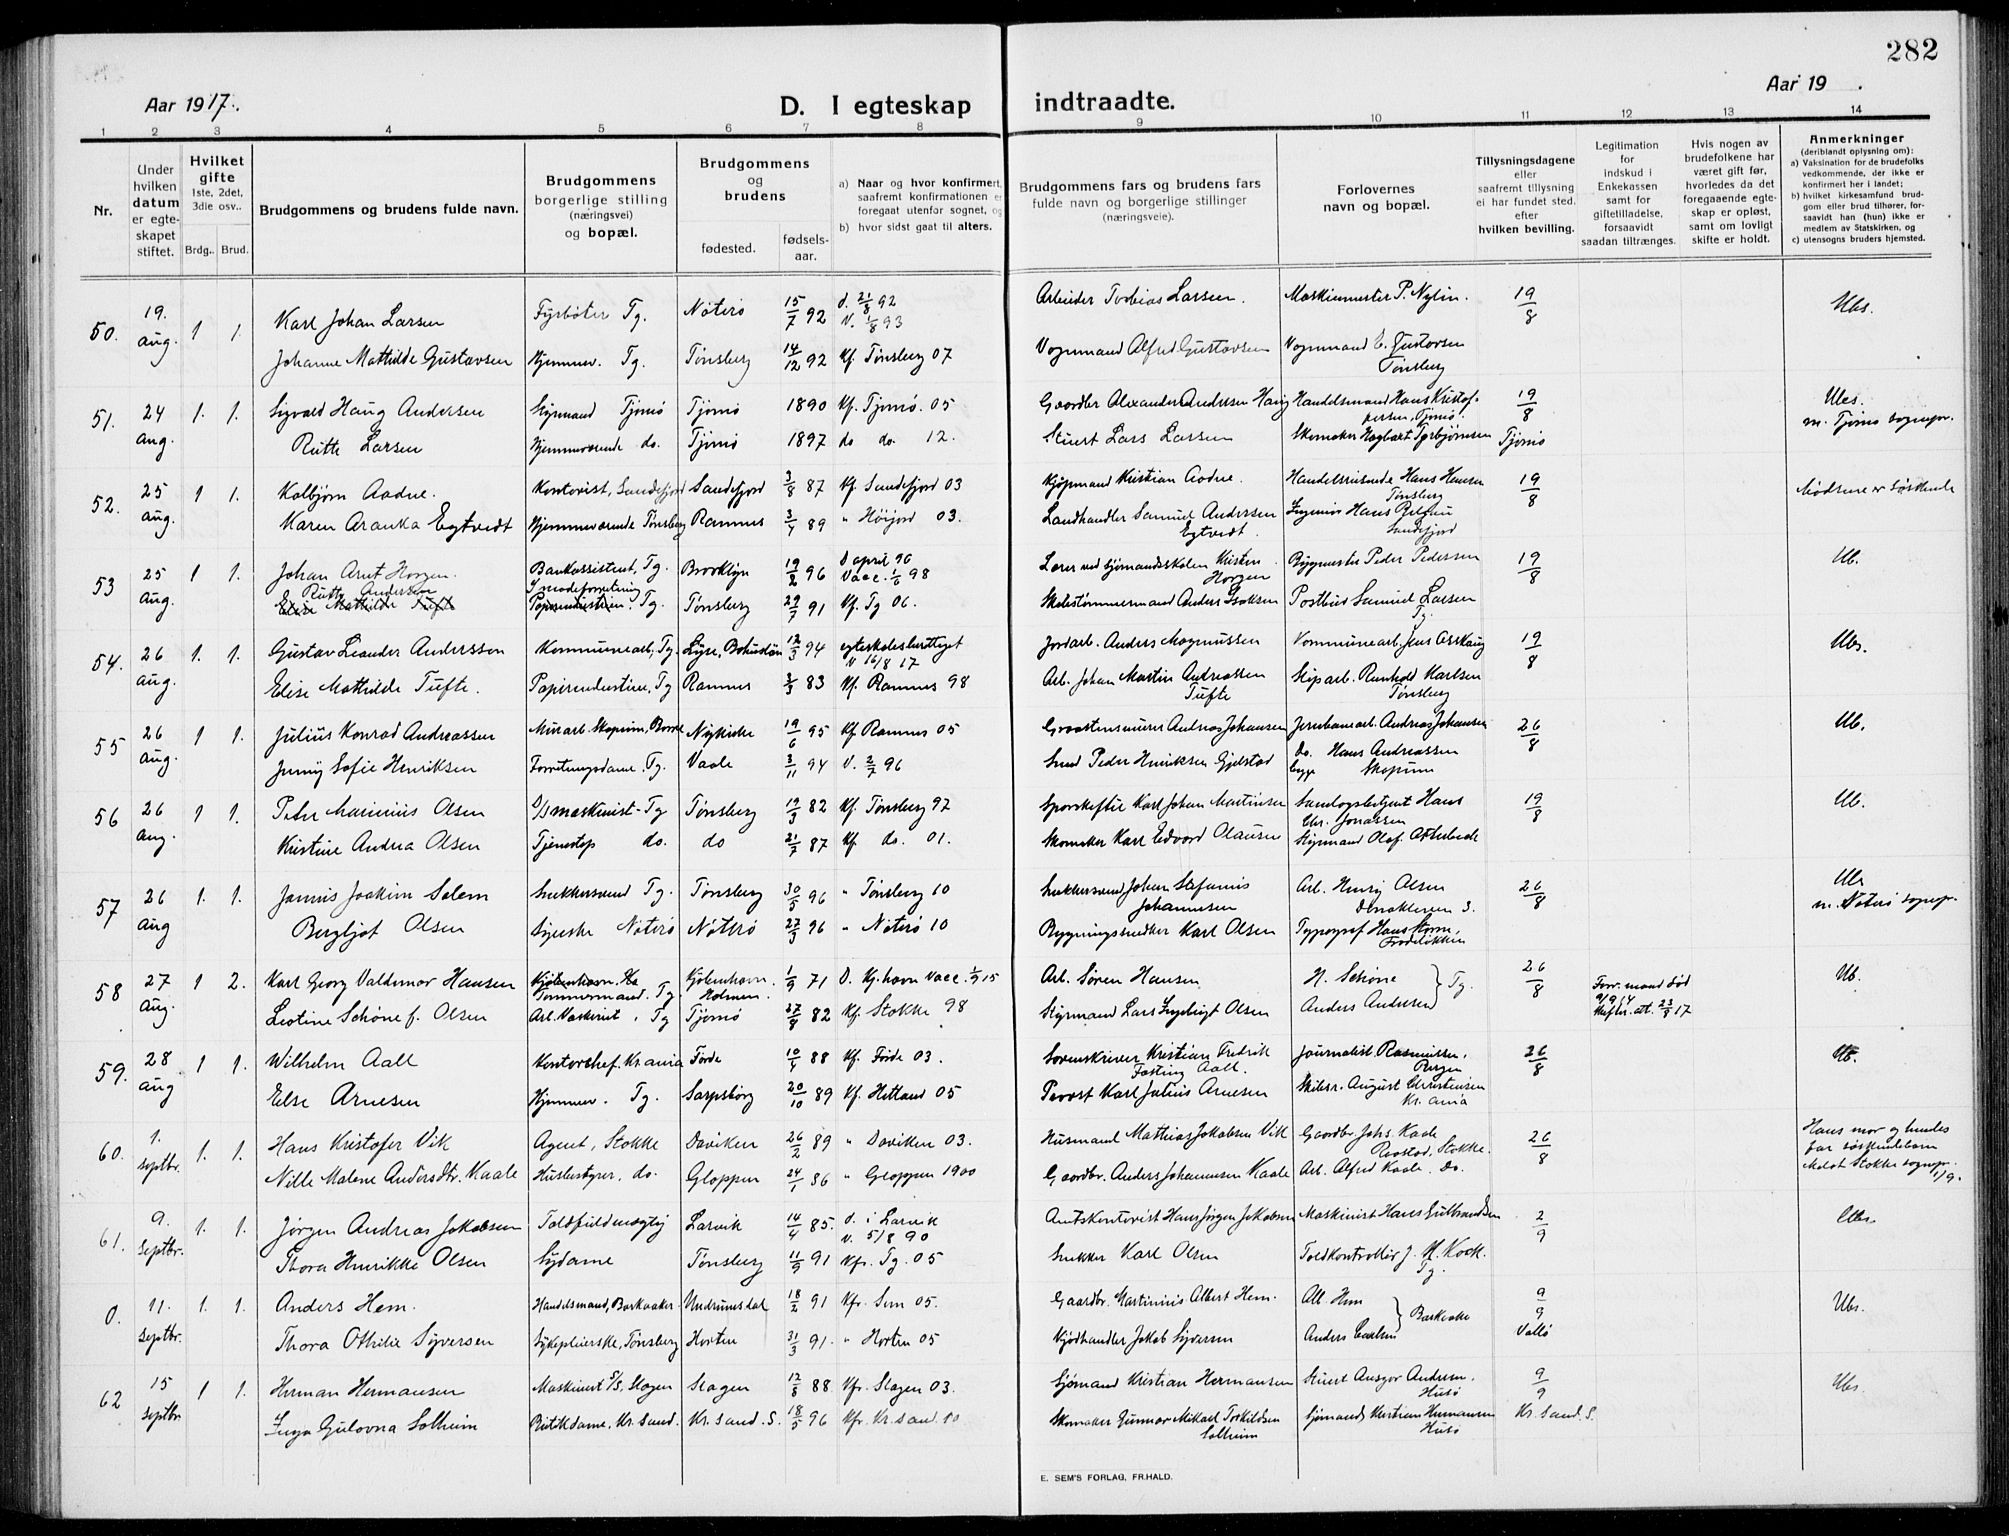 282
Aar 1917.
D. I egteskap indtraadte.
Aar 19 .
1 2 3 4 5 6 7 8 9 10 11 12 13 14
Nr.
Under hvilken datum er egteskapet stiftet.
Hvilket gifte 1ste, 2det, 3die osv..
Brdg.. Brud.
Brudgommens og brudens fulde navn.
Brudgommens borgerlige stilling (næringsvei) og bopæl.
Brudgommens og brudens
fødested.
fødselsaar.
a) Naar og hvor konfirmert, saafremt konfirmationen er foregaat utenfor sognet, og
b) hvor sidst gaat til alters.
Brudgommens fars og brudens fars fulde navn og borgerlige stillinger (næringsveie).
Forlovernes navn og bopæl.
Tillysningsdagene eller saafremt tillysning ei har fundet sted. efter hvilken bevilling.
Legitimation for indskud i Enkekassen samt for giftetilladelse, forsaavidt saadan tiltrænges.
Hvis nogen av brudefolkene har været gift før, hvorledes da det foregaaende egteskap er opløst, samt om lovligt skifte er holdt.
Anmerkninger (deriblandt oplysning om):
a) Vaksination for de brudefolks vedkommende, der ikke er konfirmert her i landet;
b) hvilket kirkesamfund brudgom eller brud tilhører, forsaavidt han (hun) ikke er medlem av Statskirken, og
c) utensogns bruders hjemsted.
50. 19. aug. 1 1. Karl Johan Larsen Fyrbøter Tg. Nøterø 15/7 92 d. 21/8 92 v. 1/8 93 Arbeider Tobias Larsen. Maskinmester P. Nylin. 19/8 Ubs.
Johanne Mathilde Gustavsen Hjemmev. Tg. Tønsberg 14/12 92 Kf. Tønsberg 07 Vognmand Alfred Gustavsen Vognmand C. Gustavsen Tønsberg
51. 24 aug. 1. 1. Sigvald Haug Andersen Styrmand Tjømø Tjømø 1890 Kf. Tjømø. 05 Gaardbr Alexander Andersen Haug Handelsmand Hans Kristoffersen, Tjømø. 19/8 Ubs. m. Tjømø sognepr.
Ruth Larsen Hjemmeværende do. Tjømø 1897 do do. 12. Stuert Lars Larsen Skomaker Hagbart Torbjørnsen Tjømø
52. 25 aug. 1 1. Kolbjørn Aadne. Kontorist, Sandefjord Sandefjord 3/8 87 Kf. Sandefjord 03 Kjøpmand Kristian Aadne. Handelsreisende Hans Hansen Tønsberg 19/8 Mødrene er søskende
Karen Aranka Egtvedt Hjemmeværende Tønsberg Ramnes 3/4 89 " Høijord 03. Landhandler Samuel Andersen Egtvedt. Ingeniør Hans Sandefjord
53 25 aug. 1 1. Johan Arnt Horgen. Bankassistent, Tg. Brooklyn 19/2 96 D april 96 Vacc. 1/6 98 Lærer ved sjømandsskolen Kristen Horgen Bygmester Peder Pedersen 19/8 Ub.
Ruth Andersen Elise Mathilde Tufte I modeforretning Papirindustrien. Tg. Tønsberg 29/7 91 Kf. Tg 06. Skibstømmermand Anders Isaksen Postbud Samuel Larsen Tg.
54. 26 aug. 1. 1. Gustav Leander Andersson Kommunearb, Tg. Lyse, Bohuslän 12/3 94 egteskabslustligt v 16/8 17 Jordarb. Anders Magnussen Kommunearb. Jens Asskaug 19/8 Ubs.
Elise Mathilde Tufte. Papirindustrien, Tg Ramnes 3/3 83 Kf. Ramnes 98 Arb. Johan Martin Andreassen Tufte Skipsarb. Reinhold Karlsen Tønsberg
55 26 aug. 1 1. Julius Konrad Andreassen Murarb. Skopum, Borre Nykirke 19/6 95 Kf Ramnes 05 Graastensmurer Andreas Johansen Jernbanearb. Andreas Johansen 26/8 Ub.
Jenny Sofie Henriksen Forretningsdame. Tg. Vaale 3/11 94 V. 2/7 96 Smed Peder Henriksen Gjelstad do. Hans Andreassen begge Skopum
56 26 aug. 1 1. Peter Marinius Olsen D/S maskinist - Tg Tønsberg 19/3 82 Kf. Tønsberg 97 Sporskifter Karl Johan Martinsen Samlagsbetjent Hans Chr. Jonassen 19/8 Ub.
Kristine Andrea Olsen Tjenestep do. do 21/7 87 Kf. do. 01. Skomaker Karl Edvard Olausen Styrmand Olaf
57 26 aug 1. 1. Jannis Joakim Salem Snekkersvend Tg. Tønsberg 30/5 96 " Tønsberg 10 Snekkersvend Johan Stefanus Johannesen Arb. Henry Olsen 3. 26/8 Ubs m. Nøterø sognepr.
Bergljot Olsen Syerske Nøterø Nøtterø 27/3 96 " Nøterø 10 Bygningssnedker Karl Olsen Typograf Hans Storm, Frederikken
58 27 aug. 1 2. Karl Georg Valdemar Hansen Kjøbenhavn Tømmermand. Tg. Kjøbenhavn. Holmen. 1/9 71 D. Kj.havn Vacc. 1/9 15 Arb. Søren Hansen H. Schöne Tg. 26/8 Forr. mand død 9/9 14 Skiftr. att. 23/8 17 Ub.
Leotine Schøne f. Olsen Arb. Vaskeriet, Tg Tjømø 27/8 82 Kf. Stokke 98 Styrmand Lars Ingebrigt Olsen Anders Andersen
59. 28 aug 1 1. Wilhelm Aall Kontorchef. Kr.ania Førde 10/4 88 Kf. Førde 03. Sorenskriver Kristian Fredrik Fasting Aall. Journalist. Rasmussen. Bergen 26/8 Ub.
Else Arnesen Hjemmev. Tg. Sarpsborg 20/10 89 Kf. Hetland 05 Provst Karl Julius Arnesen Skibsr. August Christensen Kr.ania
60. 1. septbr. 1. 1. Hans Kristofer Vik Agent, Stokke Daviken 26/2 89 " Daviken 03. Husmand Mathias Jakobsen Vik Gaardbr. Johs. Kaale Stokke. 26/8 Hans mor og hendes far søskendebarn Meldt Stokke sognepr. 1/9.
Nille Malene Andersdtr. Kaale Husbestyrer, do. Gloppen 24/1 86 " Gloppen 1900 Gaardbr. Anders Johannesen Kaale Arb. Alfred Kaale. do.
61. 9. septbr. 1. 1. Jørgen Andreas Jakobsen Toldfuldmægtig Larvik 14/4 85. d. i Larvik v. 5/8 90 Amtskontorist Hans Jørgen Jakobsen Maskinist Hans Gulbrandsen 2/9 Ubs.
Thora Henrikke Olsen Sydame Tønsberg 11/9 91 Kfr. Tg. 05 Snekker Karl Olsen Toldkontrollør J. H. Koch. Tg.
0. 11. septbr. 1. 1. Anders Hem. Handelsmand, Barkaaker. Undrumsdal 18/2 91 Kfr. Sem 05. Gaardbr. Martinius Albert Hem. Alb. Hem Barkaake 9/9 Ubs.
Thora Othilie Syversen Sykepleierske, Tønsberg Horten 31/3 91. " Horten 05 Kjødhandler Jakob Syversen Anders Carlsen Vallø
62 15 septbr 1 1. Herman Hermansen Maskinist S/S, Slagen Slagen 12/8 88 Kfr. Slagen 03. Sjømand Kristian Hermansen Stuert Ansgar Andersen. Husø 9/9 Ubs.
Inga Gulovna Solheim Butikdame, Kr. sand. Kr. sand. S. 18/5 96 Kfr. Kr. sand. 10 Skomaker Gunnar Mikael Torkildsen Solheim Sjømand Kristian Hermansen Husø Kr. sand. S.
E. SEM'S FORLAG, FR.HALD.